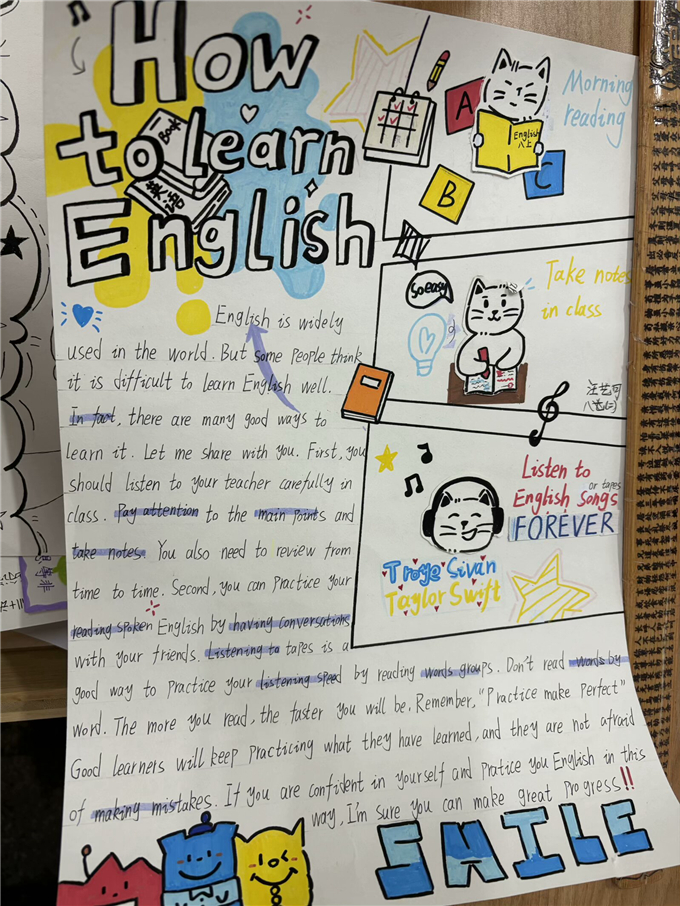 How
to Learn
English
Book
英语
English is widely
used in the world. But some people think
it is difficult to learn English well.
In fact, there are many good ways to
learn it. Let me share with you. First, you
should listen to your teacher carefully in
class. Pay attention to the main points and
take notes. You also need to review from
time to time. Second, you can practice your
reading spoken English by having conversations
with your friends. Listening to tapes is a
good way to practice your listening speed by reading words groups. Don't read words by
word. The more you read, the faster you will be. Remember, "Practice make perfect"
Good learners will keep practicing what they have learned, and they are not afraid
of making mistakes. If you are confident in yourself and pratice you English in this
way, I'm sure you can make great progress!!
A
B
C
English
八上
Morning
reading
So easy
Take notes
in class
Listen to
or tapes
English Songs
FOREVER
Troye Sivan
Taylor Swift
SMILE